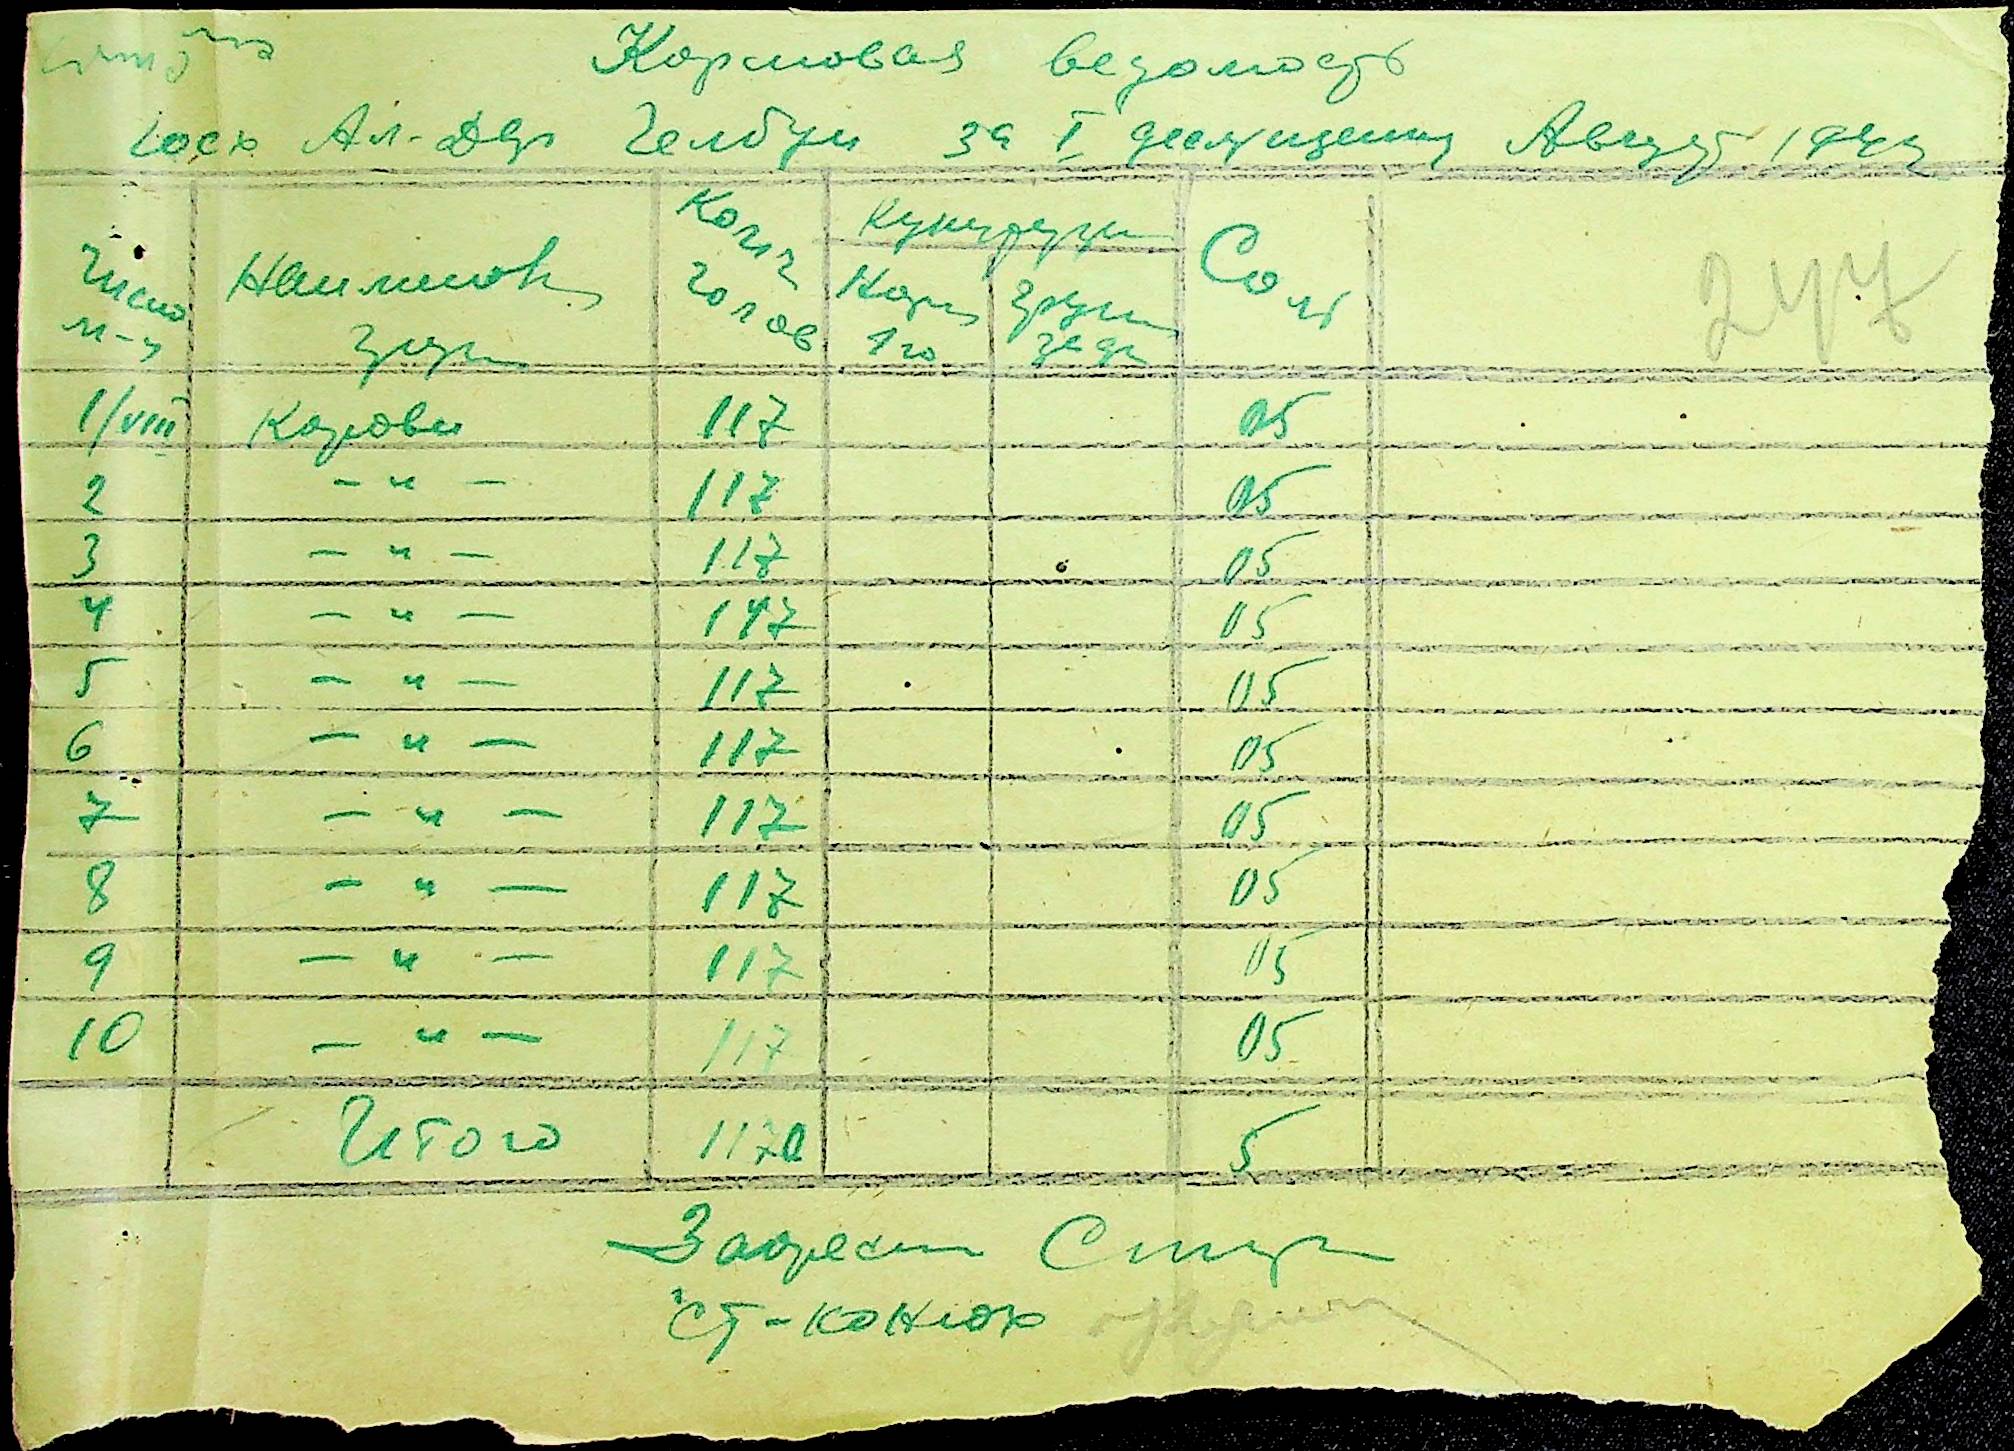 Кормовая ведомость
госх Ал-Дер Челбри за I десятидневку Август 1944
Число м-ц Наименов групп Колич голов Кукурузы Соль 247
1/VIII Коровы 117 05
2 - " - 117 05
3 - " - 117 05
4 - " - 117 05
5 - " - 117 05
6 - " - 117 05
7 - " - 117 05
8 - " - 117 05
9 - " - 117 05
10 - " - 117 05
Итого 1170 5
СТ-конюх